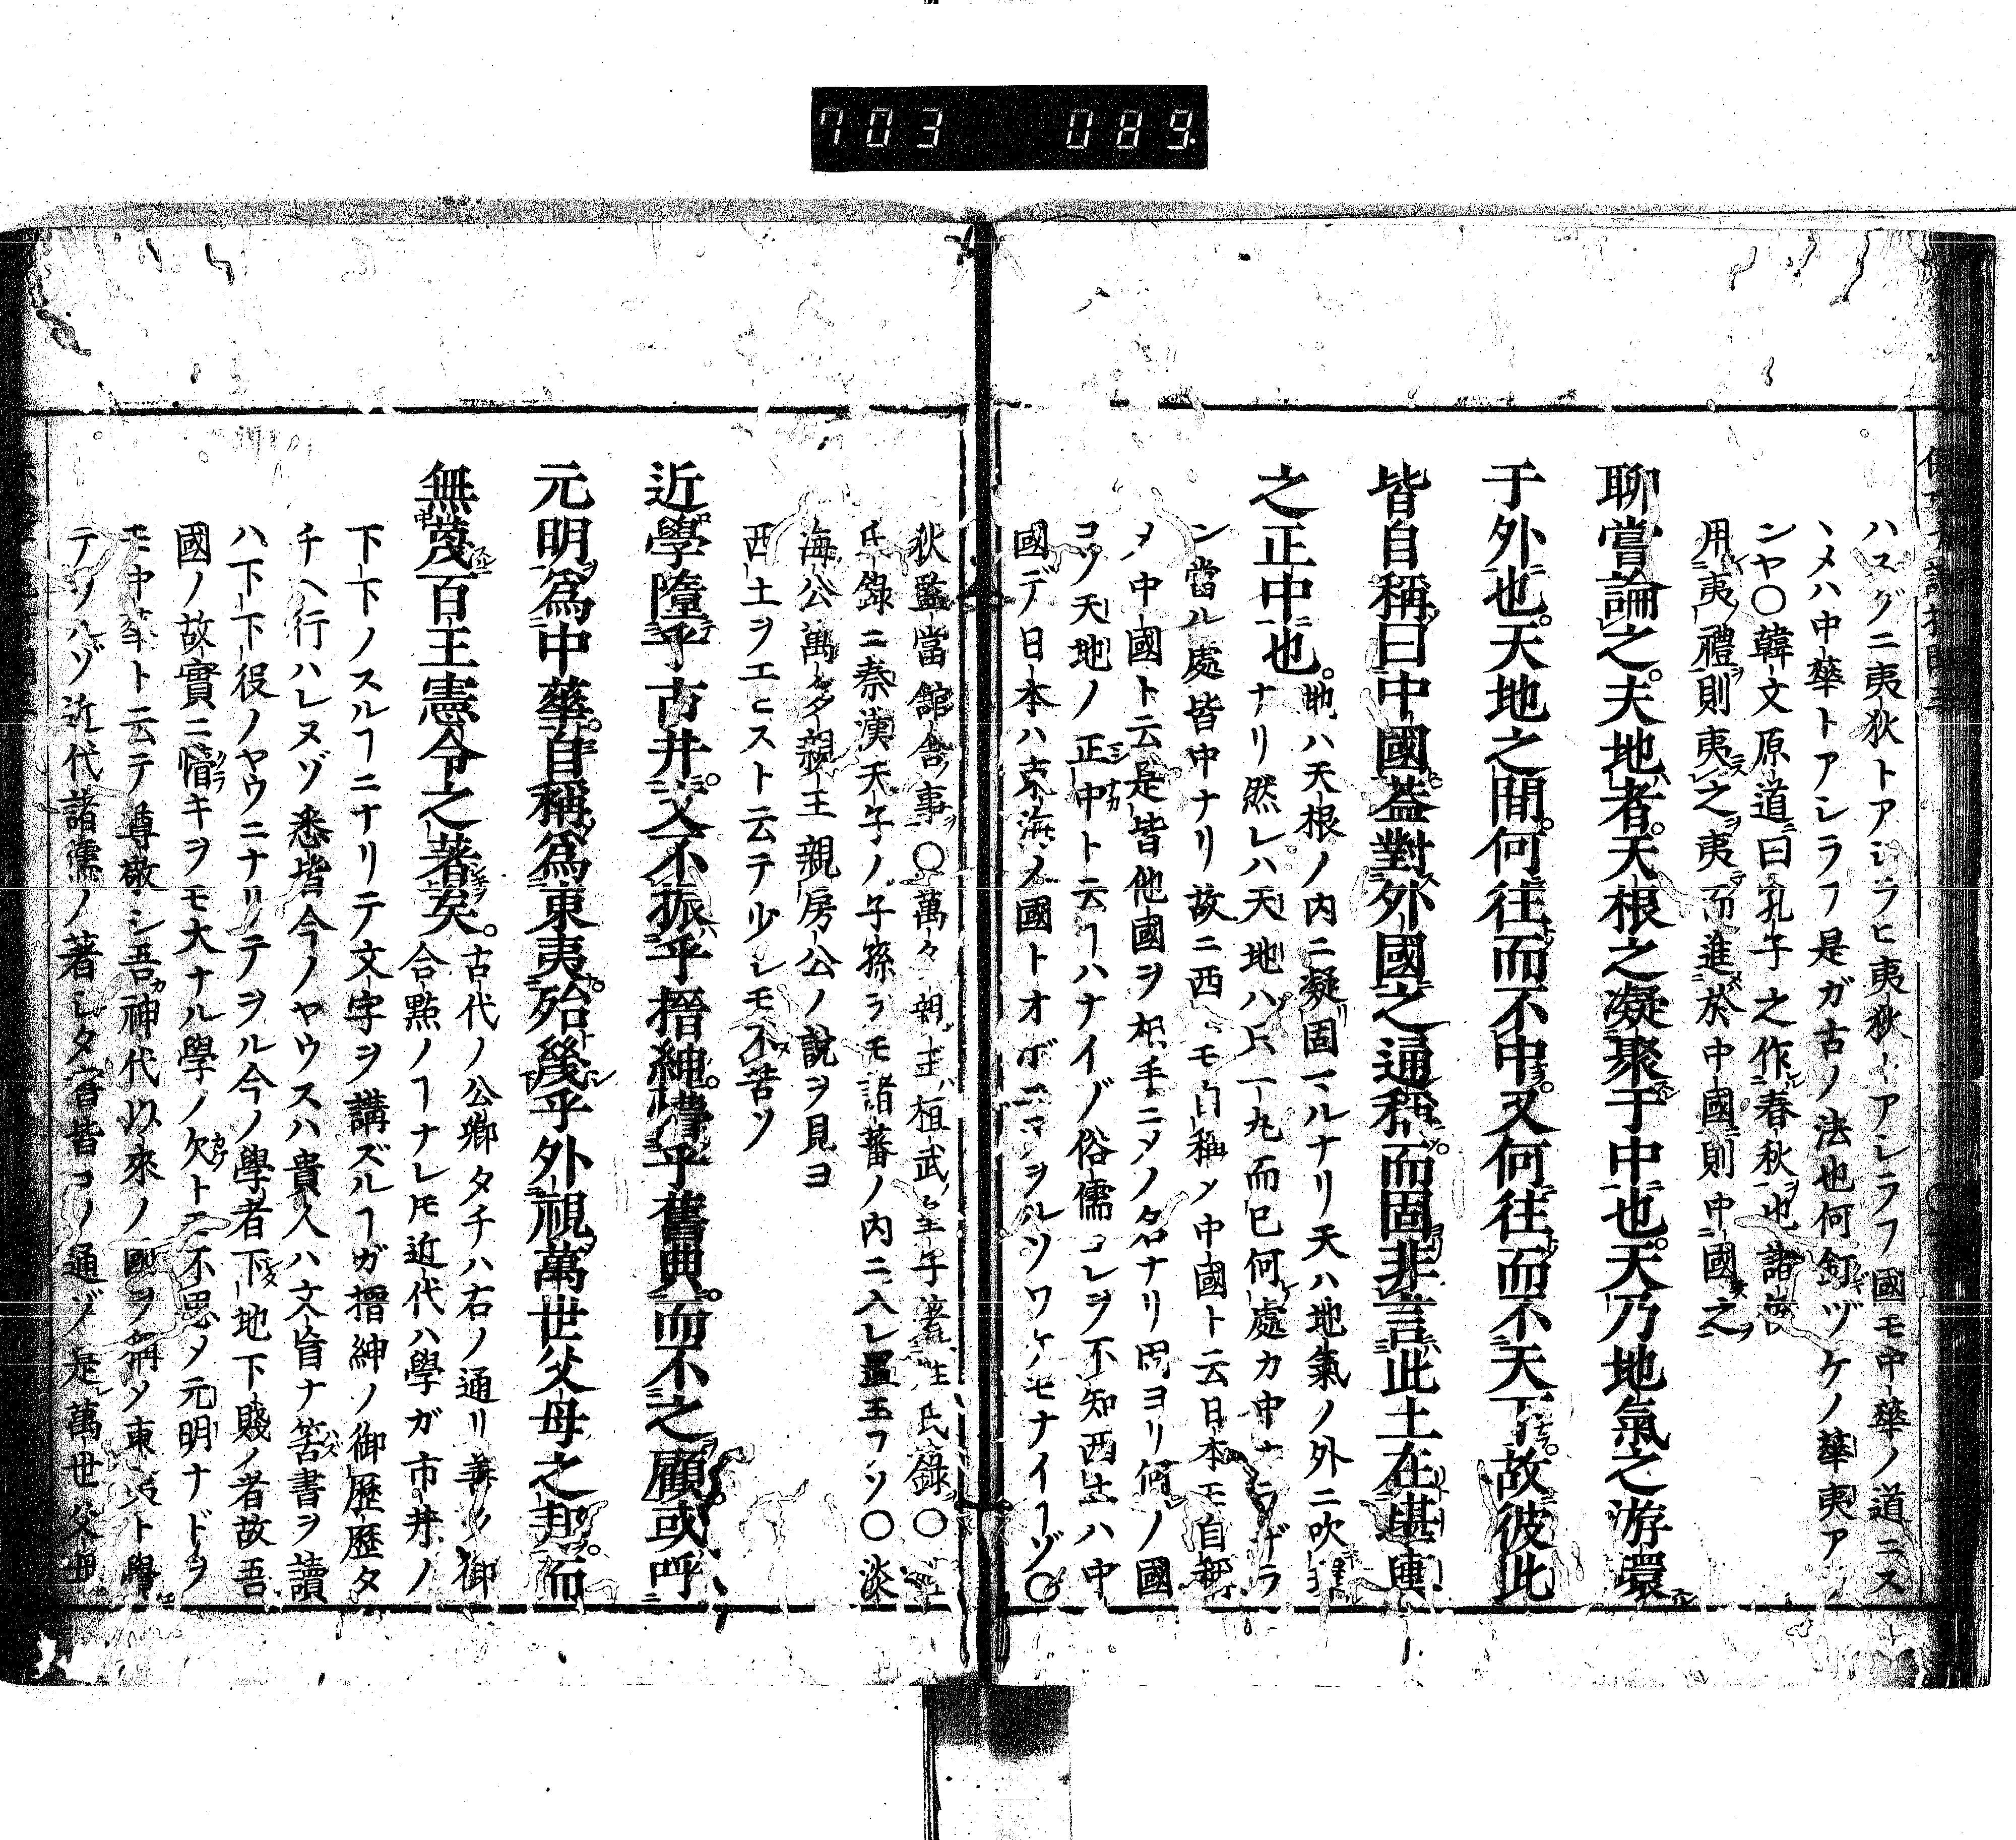 703 089
ハスグニ夷狄トアシラヒ夷狄ーアシラフ國モ中華ノ道ニス
ヽメハ中華トアシラフ是ガ古ノ法也何釘ヅケノ華夷ア
ンヤ〇韓文原道曰孔子之作春秋也諸侯
用夷禮則夷之夷而進於中國則中國之
聊嘗論之夫地者天根之凝聚于中也天乃地氣之游環
于外也天地之間何往而不中又何往而不天下故彼此
皆自稱曰中國蓋對外國之通稱而固非言此土在堪輿
之正中也
地ハ天根ノ内ニ凝固マルナリ天ハ地氣ノ外ニ吹
ナリ然レハ天地ハ只一丸而已何處カ中ナラザラ
ン當ル處皆中ナリ故ニ西ニモ自稱メ中國ト云日本モ自稱
メ中國ト云是皆他國ヲ相手ニメノ名ナリ因ヨリ何ノ國
コソ天地ノ正中ト云ヿハナイゾ俗儒コレヲ不知西土ハ中
國デ日本ハ東海ノ國トオボエマヲルソワケモナイヿゾ〇
狄監當館舎事〇萬々親王桓武皇子著姓氏錄〇
氏錄ニ秦漢天子ノ子孫ラモ諸蕃ノ内ニ入レ置玉フソ〇淡
海公萬多親王親房公ノ說ヲ見ヨ
西土ヲエヒスト云テ少レモ不苦ソ
近學隆乎古井又不振乎搢紳墆乎舊典而不之顧或呼
元明爲中華自稱爲東夷殆幾乎外視萬世父母之邦而
無蔑百王憲令之著矣
古代ノ公卿タチハ右ノ通リ善ノ御
合點ノヿナレ𪜈近代ハ學ガ市井ノ
下下ノスルヿニナリテ文字ヲ講ズルヿガ搢紳ソ御歷歷タ
チヘ行ハレヌゾ悉皆今ノヤウスハ貴人ハ文盲ナ筈書ヲ讀
ハ下下役ノヤウニナリテヲル今ノ學者下地下賤ノ者故吾
國ノ故實ニ惛キヲモ大ナル學ノ欠トモ不思メ元明ナドヲ
モ中華ト云テ尊敬シ吾神代以來ノ國ヲ稱メ東夷ト學
テソルゾ近代諸儒ノ著レタ書皆コノ通ゾ是萬世父母